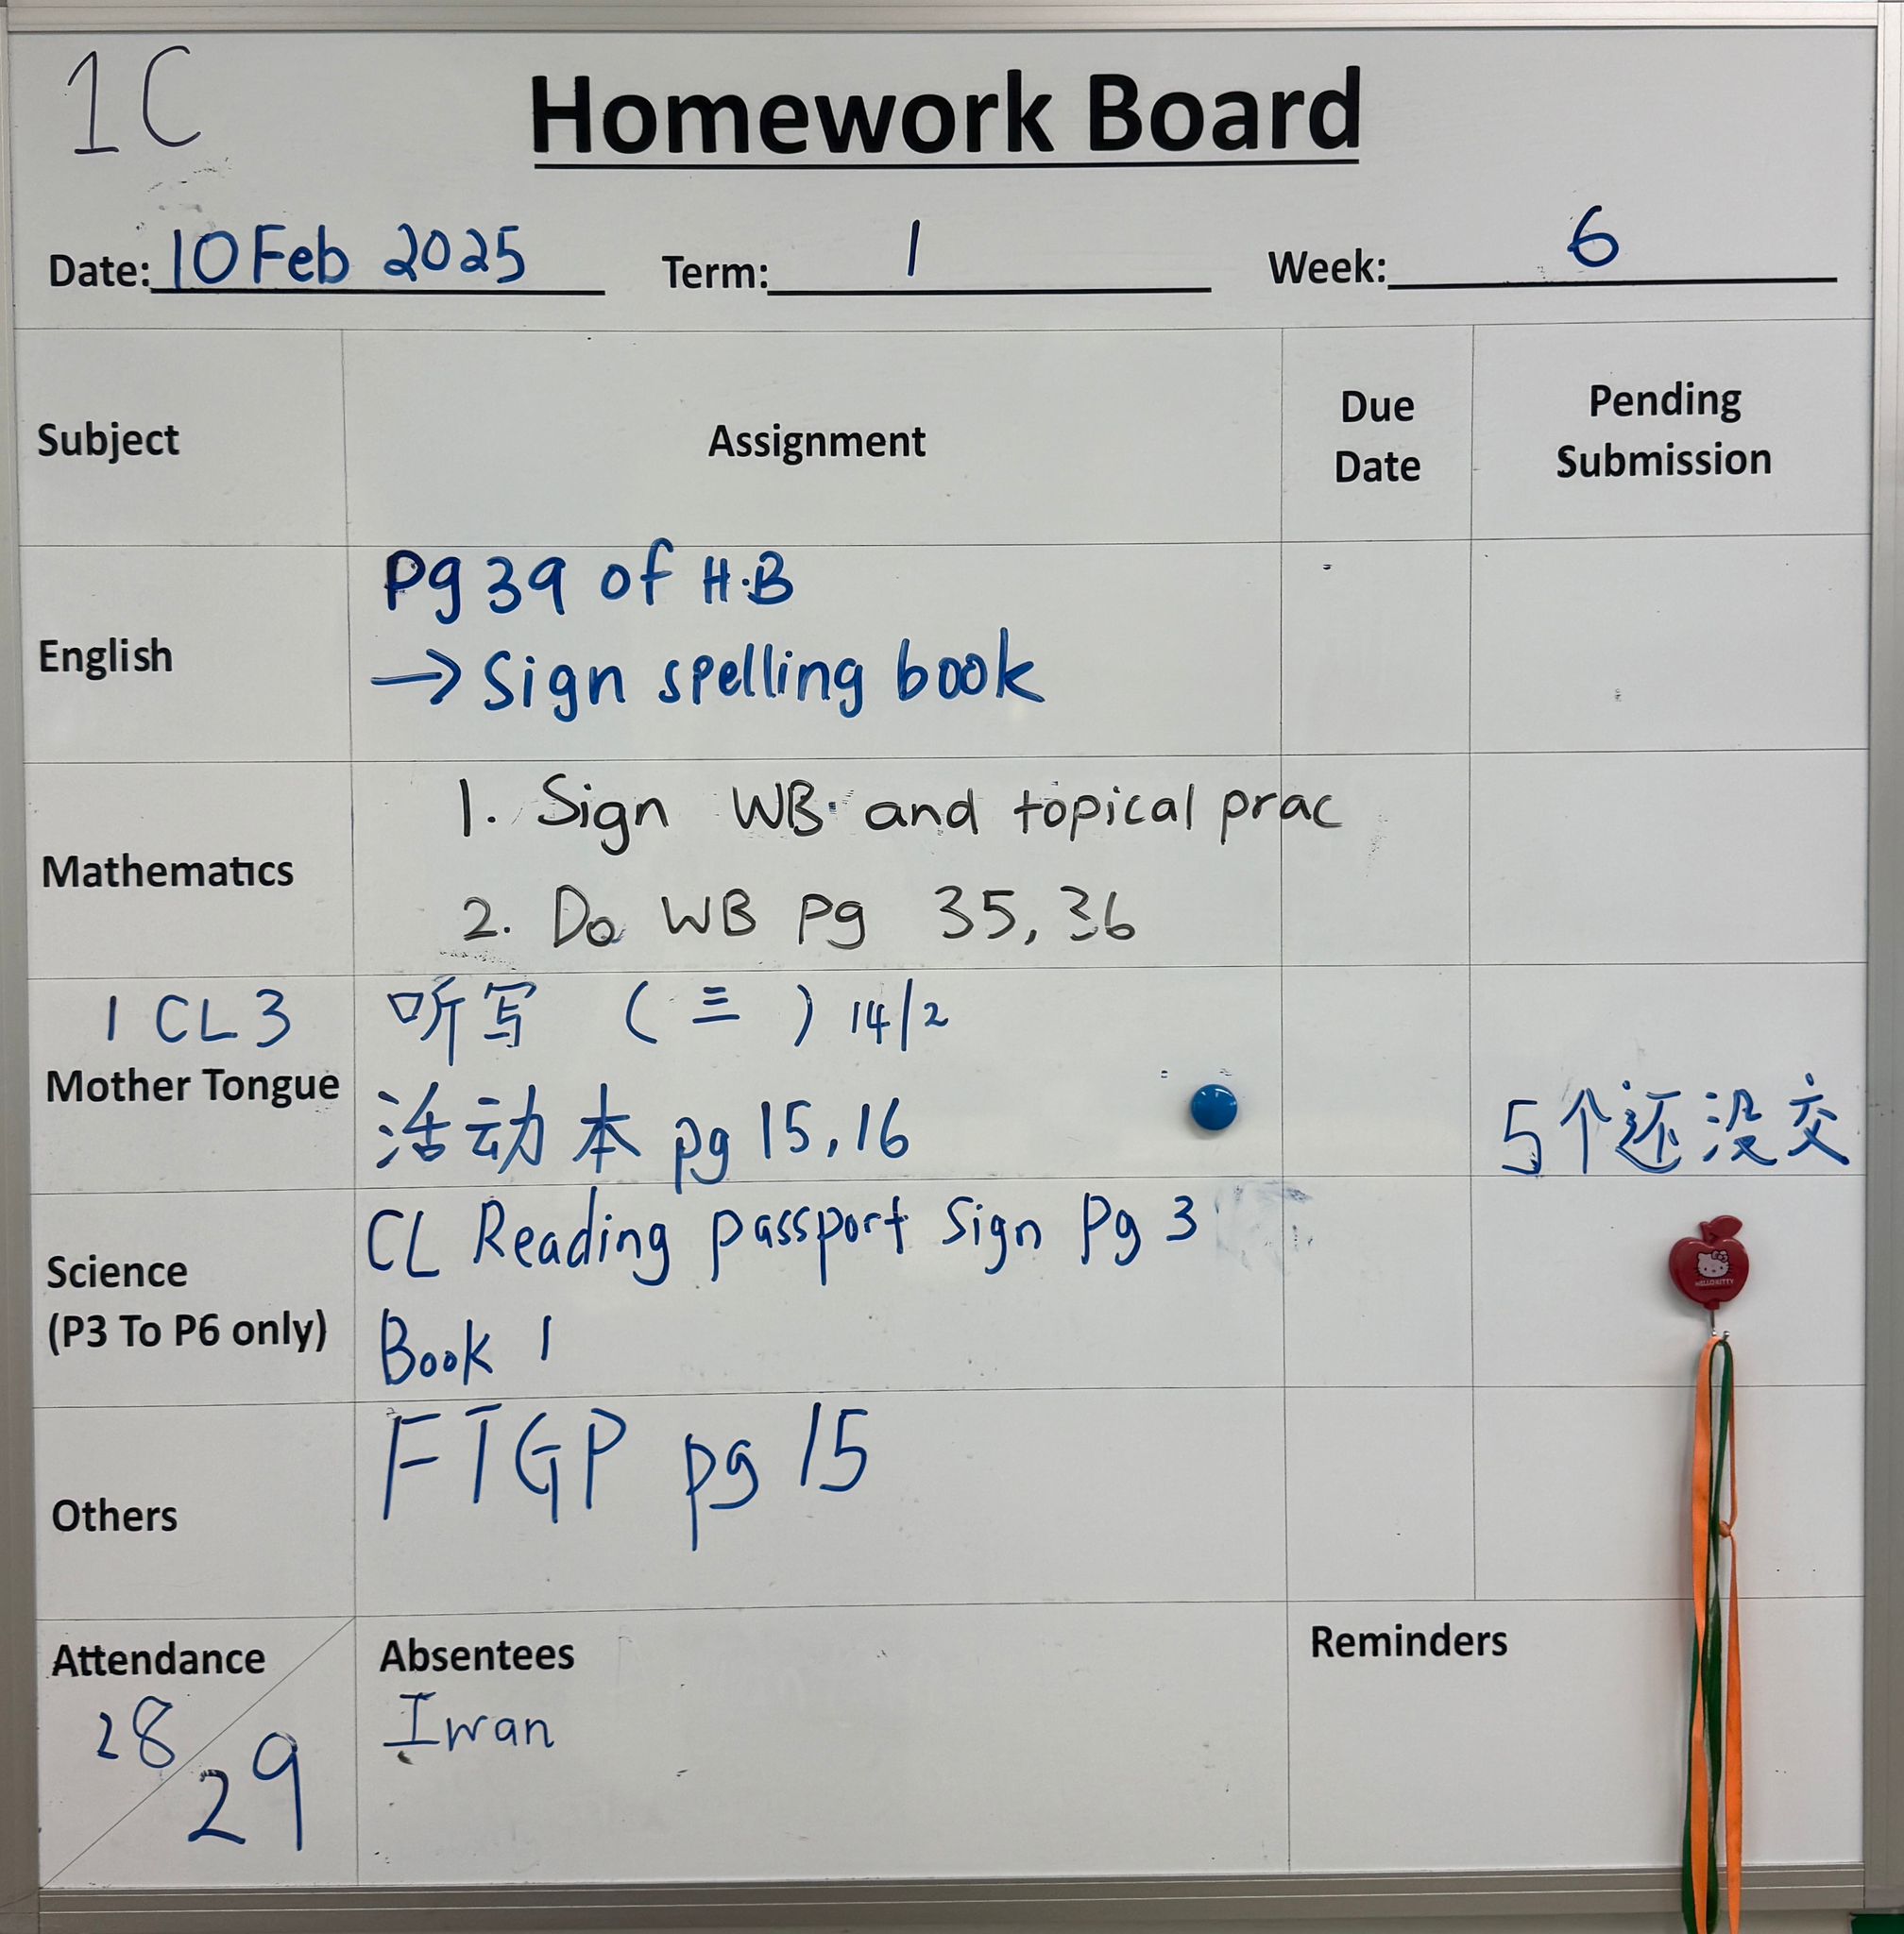 1C
Homework Board
Date: 10 Feb 2025 Term: 1 Week: 6
Subject Assignment Due Date Pending Submission
English
Pg 39 of H.B
→ Sign spelling book
Mathematics
1. Sign WB and topical prac
2. Do WB Pg 35, 36
1 CL 3
Mother Tongue
听写 (三) 14/2
活动本 pg 15, 16
5个还没交
Science
(P3 To P6 only)
CL Reading passport Sign Pg 3
Book 1
HELLO KITTY
Others
FTGP pg 15
Attendance
28
29
Absentees
Iwan
Reminders